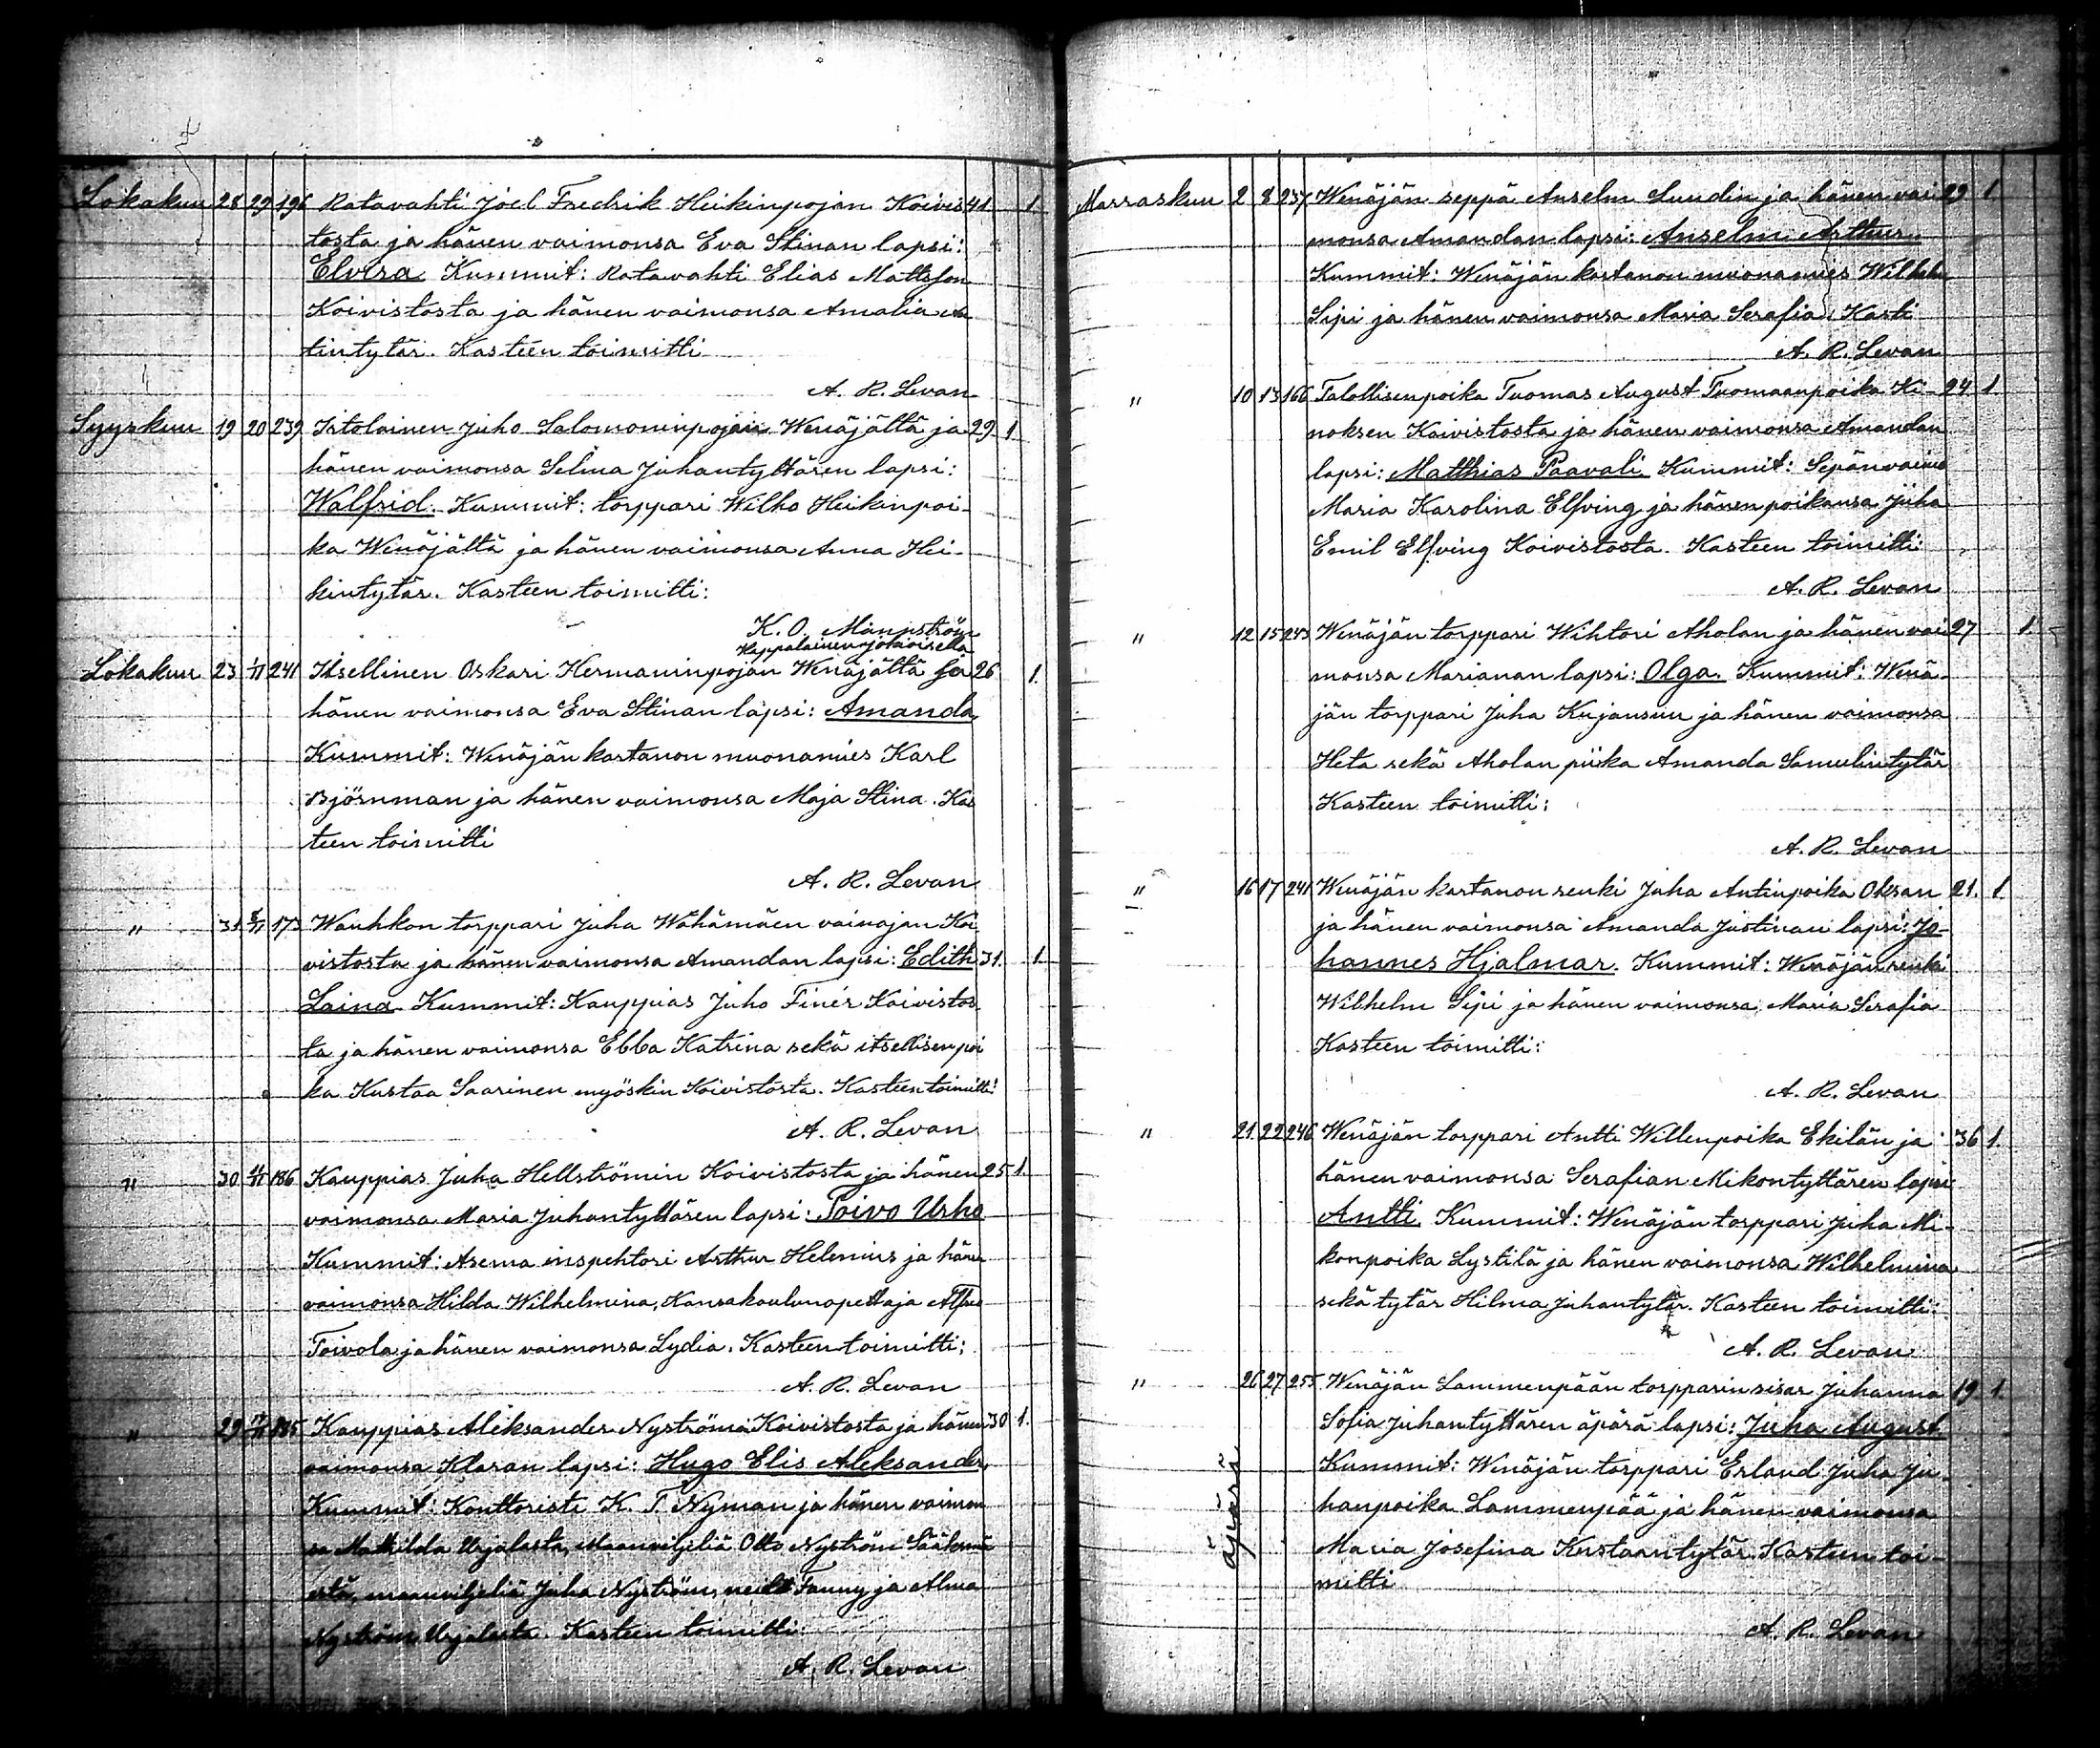 Lokakuu 28 29 196 Ratavahti Joel Fredrik Heikinpojan Koivis 41 1
tosta ja hänen vaimonsa Eva Stinan lapsi:
Elvira Kummit: Ratavahti Elias Mattsson
Koivistosta ja hänen vaimonsa Amalia
tintytär. Kasteen toimitti
A. R. Levan
Syyskuu 19 20 239 Irtolainen Juho Salomoninpojan Wenäjältä ja 29 1
hänen vaimonsa Selma Juhantyttären lapsi:
Walfrid. Kummit: torppari Wilho Heikinpoi-
ka Wenäjältä ja hänen vaimonsa Anna Hei-
kintytär. Kasteen toimitti:
K. O. Mannström
Kappalainen Jokioisella
Lokakuu 23 1/11 241 Itsellinen Oskari Hermaninpojan Wenäjältä ja 26 1.
hänen vaimonsa Eva Stinan lapsi: Amanda
Kummit: Wenäjän kartanon muonamies Karl
Björnman ja hänen vaimonsa Maja Stina. Kas
teen toimitti
A. R. Levan
" 31 173 Wauhkon torppari Juha Wähämäen vainajan Koi
vistosta ja hänen vaimonsa Amandan lapsi: Edith 31. 1.
Laina Kummit: Kauppias Juho Finér Koivistos
ta ja hänen vaimonsa Ebba Katrina sekä itsellisenpoi
ka Kustaa Saarinen myöskin Koivistosta. Kasteen toimitti:
A. R. Levan
" 30 186 Kauppias Juha Hellströmin Koivistosta ja hänen 25 1.
vaimonsa Maria Juhantyttären lapsi: Toivo Urho
Kummit: Asema inspehtori Arthur Helenius ja hänen
vaimonsa Hilda Wilhelmina, Kansakoulunopettaja Alfred
Toivola ja hänen vaimonsa Lydia. Kasteen toimitti;
A. R. Levan
" 29 185 Kauppias Aleksander Nyströmin Koivistosta ja hänen 30 1.
vaimonsa Klaran lapsi: Hugo Elis Aleksander.
Kummit: Konttoristi K. T. Nyman ja hänen vaimon
sa Mathilda Urjalasta, Maanviljeliä Otto Nyström Sääksmä
eltä, maanviljeliä Juha Nyström, neidit Fanny ja Alma
Nyström Urjalasta. Kasteen toimitti:
A. R. Levan
Marraskuu 2 8 237 Wenäjän seppä Anselm Lundin ja hänen vai 29 1
monsa Amandan lapsi: Anselm Arthur.
Kummit: Wenäjän kartanon muonamies Wilhelm
Sipi ja hänen vaimonsa Maria Serafia. Kasti
A. R. Levan
" 10 13 166 Talollisenpoika Tuomas August Tuomaanpoika Ki- 24 1
noksen Koivistosta ja hänen vaimonsa Amandan
lapsi: Matthias Paavali Kummit: Sepänvaimo
Maria Karolina Elfving ja hänen poikansa Juha
Emil Elfving Koivistosta. Kasteen toimitti
A. R. Levan
" 12 15 243 Wenäjän torppari Wihtori Aholan ja hänen vai 27 1.
monsa Marianan lapsi: Olga. Kummit: Wenä-
jän torppari Juha Kujansuu ja hänen vaimonsa
Heta sekä Aholan piika Amanda Samulintytär
Kasteen toimitti:
A. R. Levan
" 16 17 241 Wenäjän kartanon renki Juha Antinpoika Oksan 21. 1.
ja hänen vaimonsa Amanda Justinan lapsi: Jo-
hannes Hjalmar. Kummit: Wenäjän renki
Wilhelm Sipi ja hänen vaimonsa Maria Serafia
Kasteen toimitti:
A. R. Levan
" 21 22 246 Wenäjän torppari Antti Willenpoika Ekilän ja 36 1.
hänen vaimonsa Serafian Mikontyttären lapsi
Antti Kummit: Wenäjän torppari Juha Mi-
konpoika Lystilä ja hänen vaimonsa Wilhelmina
sekä tytär Hilma Juhantytär. Kasteen toimitti:
A. R. Levan
" 26 27 255 Wenäjän Lammenpään torpparin sisar Johanna 19 1.
Sofia Juhantyttären äpärä lapsi: Juha August
Kummit: Wenäjän torppari Erland Juha Ju-
hanpoika Lammenpää ja hänen vaimonsa
Maria Josefina Kustaantytär. Kasteen toi-
mitti
äpärä
A. R. Levan